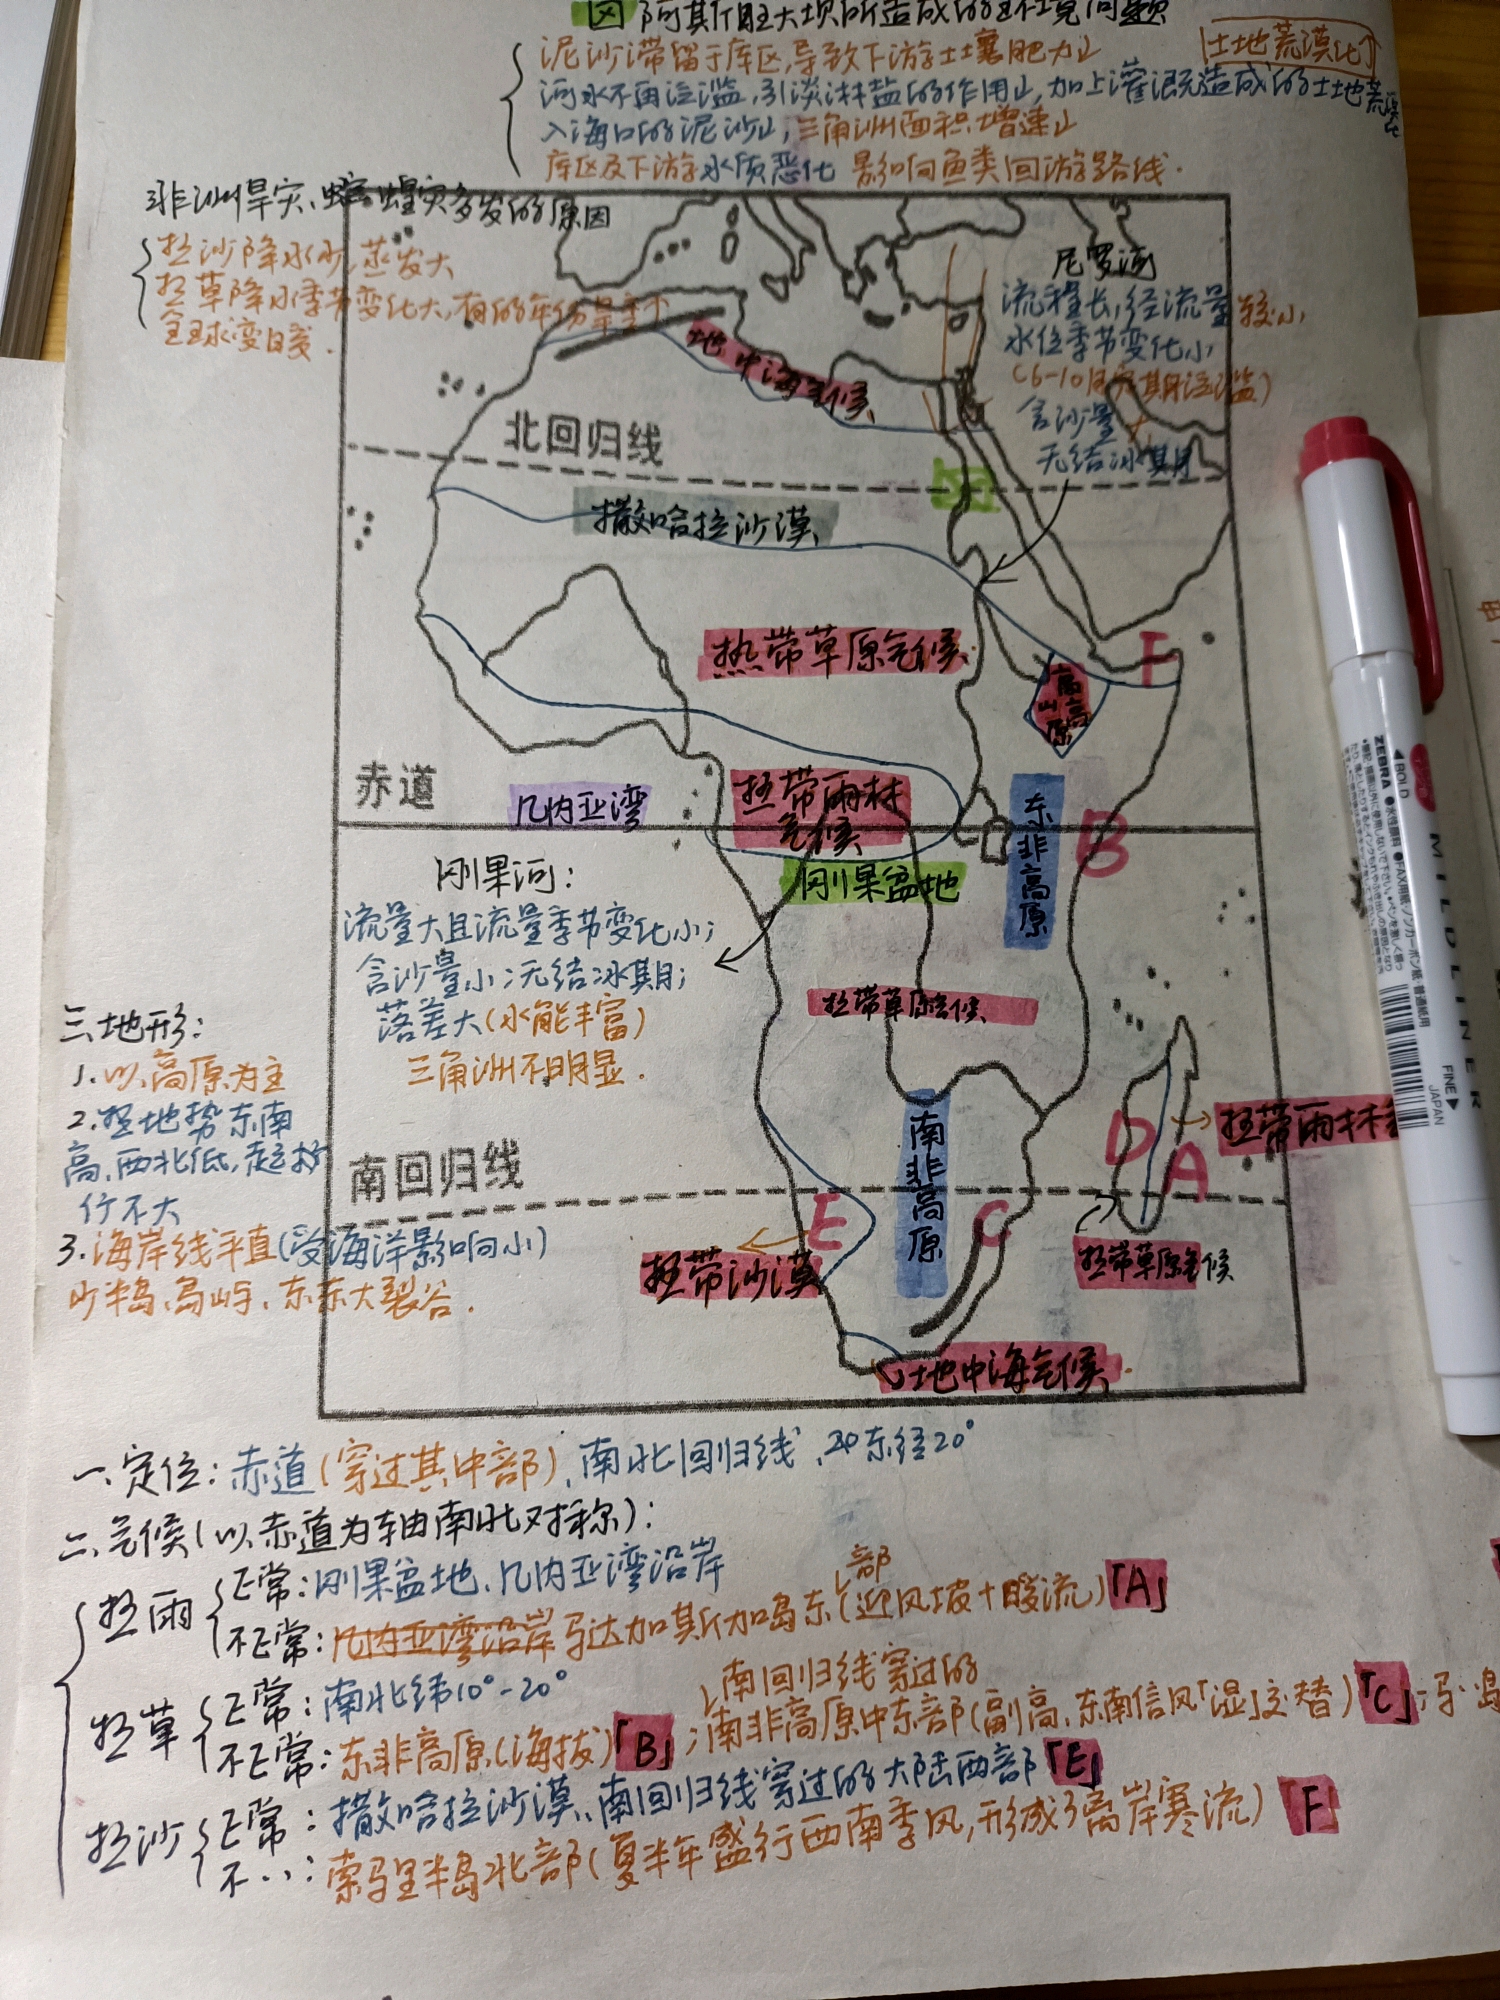 阿斯旺大坝所造成的环境问题
泥沙滞留于库区,导致下游土壤肥力↓
土地荒漠化
河水不再泛滥,引淡淋盐的作用↓,加上灌溉造成的土地荒漠化
入海口的泥沙↓,三角洲面积增速↓
库区及下游水质恶化 影响鱼类回游路线.
非洲旱灾、蝗灾多发的原因
热沙降水少,蒸发大
热草降水季节变化大,有的年份旱季长
全球变暖.
尼罗河
流程长,径流量较小
水位季节变化小
(6-10月定期泛滥)
含沙量
无结冰期
地中海气候
北回归线
撒哈拉沙漠
热带草原气候
高山高原
F
赤道
几内亚湾
热带雨林
气候
东非高原
B
刚果盆地
刚果河:
流量大且流量季节变化小;
含沙量小;无结冰期;
落差大(水能丰富)
三角洲不明显.
热带草原气候
三、地形:
1.以高原为主
2.地势东南
高,西北低,起
伏不大
3.海岸线平直(受海洋影响小)
少半岛、岛屿、东东大裂谷.
南回归线
南非高原
D
A
热带雨林
E
C
热带沙漠
热带草原气候
地中海气候
一、定位:赤道(穿过其中部)、南北回归线、和东经20°
二、气候(以赤道为轴南北对称):
热雨
正常:刚果盆地、几内亚湾沿岸
部
不正常:几内亚湾沿岸马达加斯加岛东(迎风坡+暖流)「A」
热草
正常:南北纬10°-20°
南回归线穿过的
不正常:东非高原(海拔)「B」;南非高原中东部(副高、东南信风「湿」交替)「C」;马岛
热沙
正常:撒哈拉沙漠、南回归线穿过的大陆西部「E」
不··:索马里半岛北部(夏半年盛行西南季风,形成了离岸寒流)「F」
ZEBRA
MILDLINER
BOLD
FINE
JAPAN